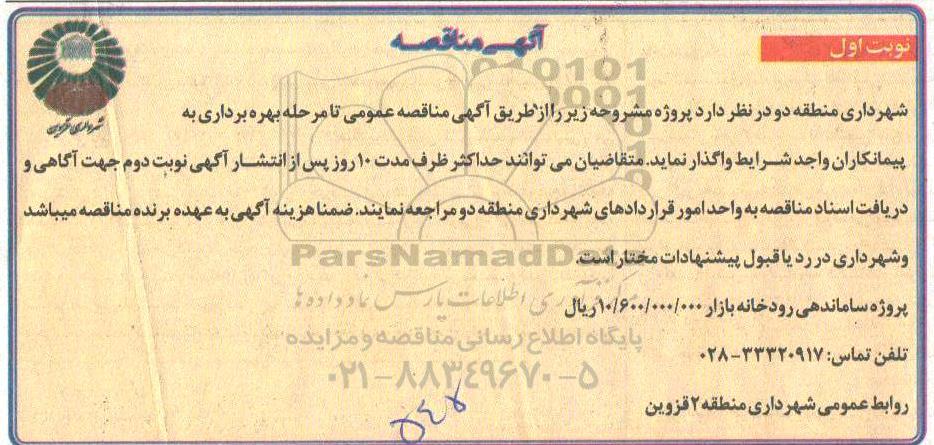 آگهی مناقصه
نوبت اول
شهرداری قزوین
شهرداری منطقه دو در نظر دارد پروژه مشروحه زیر را از طریق آگهی مناقصه عمومی تا مرحله بهره برداری به
پیمانکاران واجد شرایط واگذار نماید. متقاضیان می توانند حداکثر ظرف مدت ۱۰ روز پس از انتشار آگهی نوبت دوم جهت آگاهی و
دریافت اسناد مناقصه به واحد امور قراردادهای شهرداری منطقه دو مراجعه نمایند. ضمنا هزینه آگهی به عهده برنده مناقصه میباشد
وشهرداری در رد یا قبول پیشنهادات مختار است.
پروژه ساماندهی رودخانه بازار ۱۰/۶۰۰/۰۰۰/۰۰۰ریال
تلفن تماس: ۳۳۳۲۰۹۱۷-۰۲۸
روابط عمومی شهرداری منطقه ۲ قزوین
ParsNamadData
مرکز فرآوری اطلاعات پارس نماد داده ها
پایگاه اطلاع رسانی مناقصه و مزایده
۰۲۱-۸۸۳۴۹۶۷۰-۵